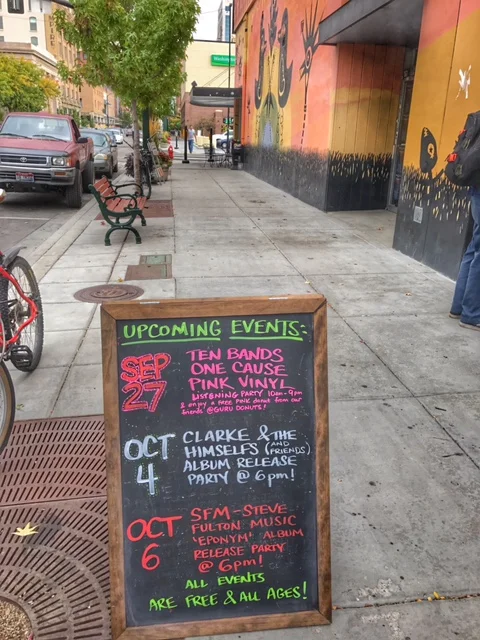 UPCOMING EVENTS:
SEP
27
TEN BANDS
ONE CAUSE
PINK VINYL
LISTENING PARTY 10am-9pm
& enjoy a FREE PINK donut from our
friends @GURU DONUTS!
OCT
4
CLARKE & THE
HIMSELFS (AND FRIENDS)
ALBUM RELEASE
PARTY @ 6pm!
OCT
6
SFM-STEVE
FULTON MUSIC
'EPONYM' ALBUM
RELEASE PARTY
@ 6pm!
ALL EVENTS
ARE FREE & ALL AGES!